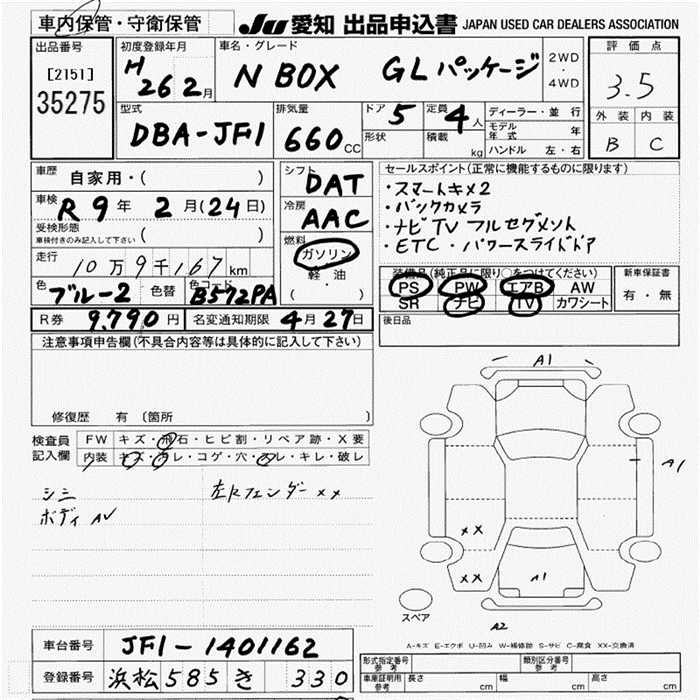 車内保管・守衛保管 JU 愛知 出品申込書 JAPAN USED CAR DEALERS ASSOCIATION
出品番号 初度登録年月 車名・グレード 評価点
[2151] H 26 2月 N BOX GLパッケージ 2WD・4WD 3.5
35275 型式 排気量 ドア 5 定員 4人 ディーラー・並行 外装 内装
DBA-JF1 660 CC 形状 積載 kg モデル年式 年 B C
ハンドル 左・右
車歴 自家用・( ) シフト DAT セールスポイント(正常に機能するものに限ります)
車検 R 9年 2月(24日) 冷房 AAC ・スマートキメ2
受検形態 車検付きのみ記入して下さい ( ) ・バックカメラ
燃料 ガソリン・軽油 ( ) ・ナビTV フルセグメント
走行 10万9千167km ・ETC・パワースライドドア
色 ブルー2 色替 色コード B572PA 装備品(純正品に限り○をつけてください) 新車保証書
PS PW エアB AW 有・無
SR ナビ TV カワシート
R券 9,790円 名変通知期限 4月27日 後日品
注意事項申告欄(不具合内容等は具体的に記入して下さい)
A1
修復歴 有 (箇所
検査員記入欄 FW キズ・飛石・ヒビ割・リペア跡・X要
内装 キズ・ヨレ・コゲ・穴・スレ・キレ・破レ
A1
シミ 左Rフェンダー××
ボディAV
××
×× A1
スペア
A2
A-キズ E-エクボ U-凹み W-補修跡 S-サビ C-腐食 XX-交換済
車台番号 JF1-1401162
形式指定番号 参考 類別区分番号 参考
登録番号 浜松 585 き 330 車庫証明用 参考 長さ cm 幅 cm 高さ cm